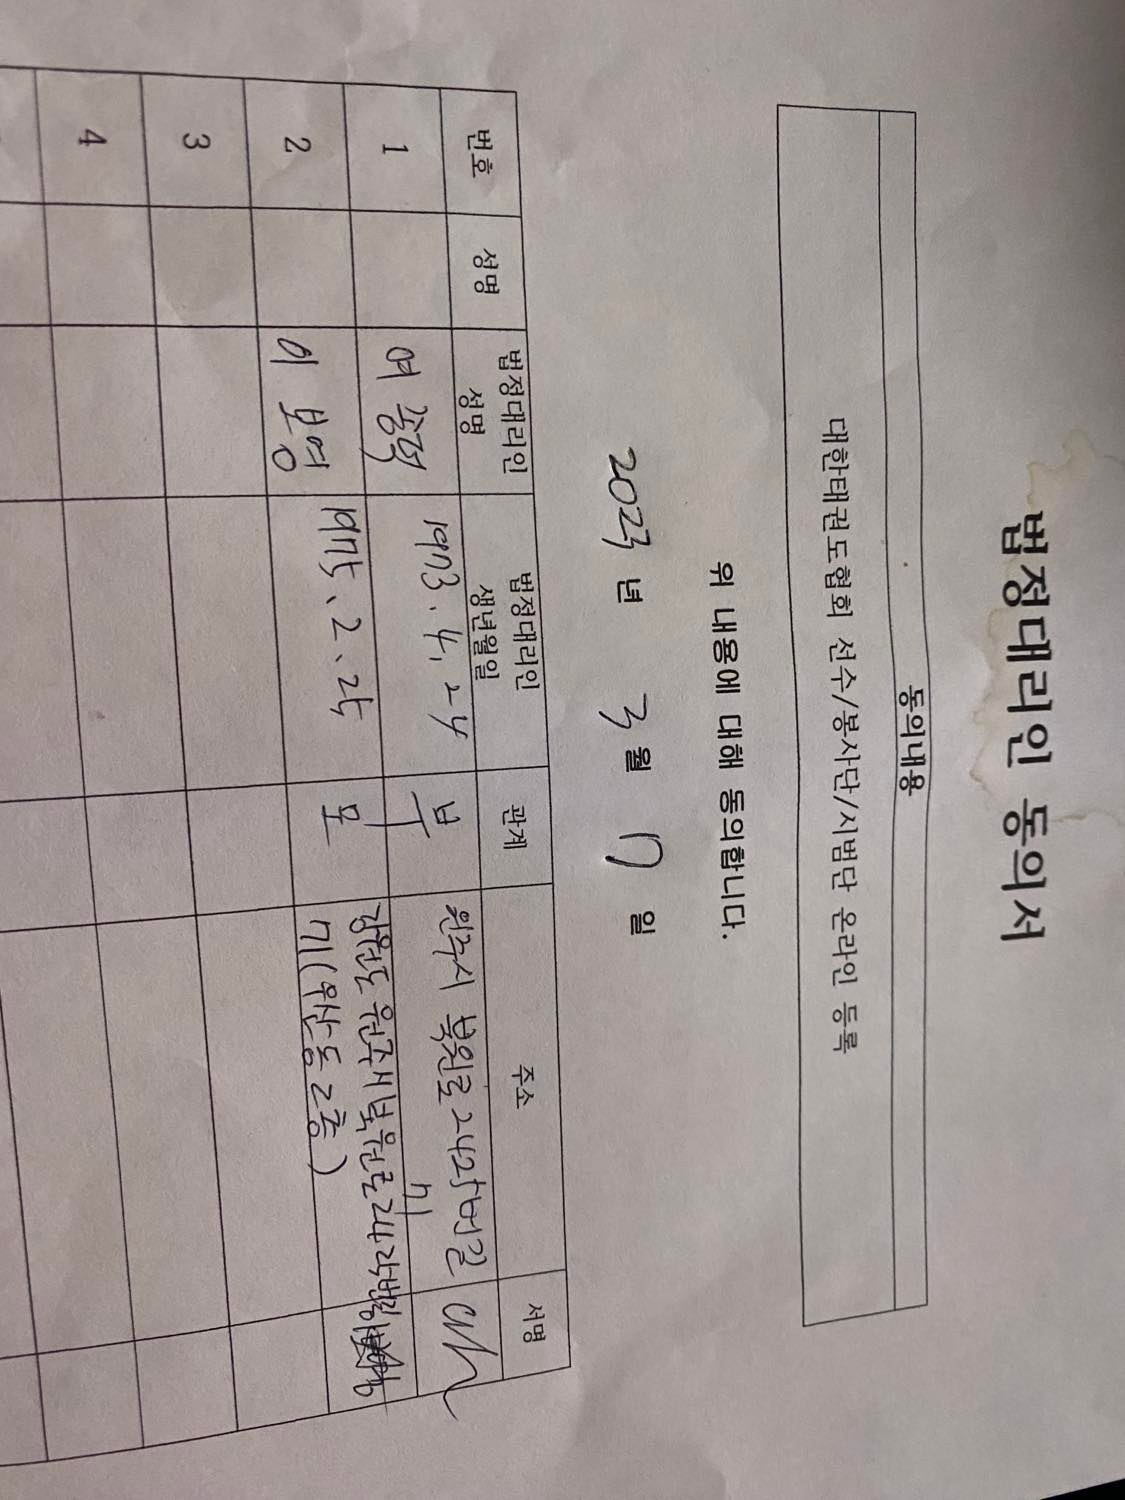 법정대리인 동의서
동의내용
대한태권도협회 선수/봉사단/시범단 온라인 등록
위 내용에 대해 동의합니다.
2023년 3월 17일
번호 성명 법정대리인 성명 법정대리인 생년월일 관계 주소 서명
1 여 1973. 4. 24 부 원주시 북원로 2425번길 71
2 이보영 1975. 2. 25 모 강원도 원주시 북원로 2425번길 71(우산동 2층)
3
4